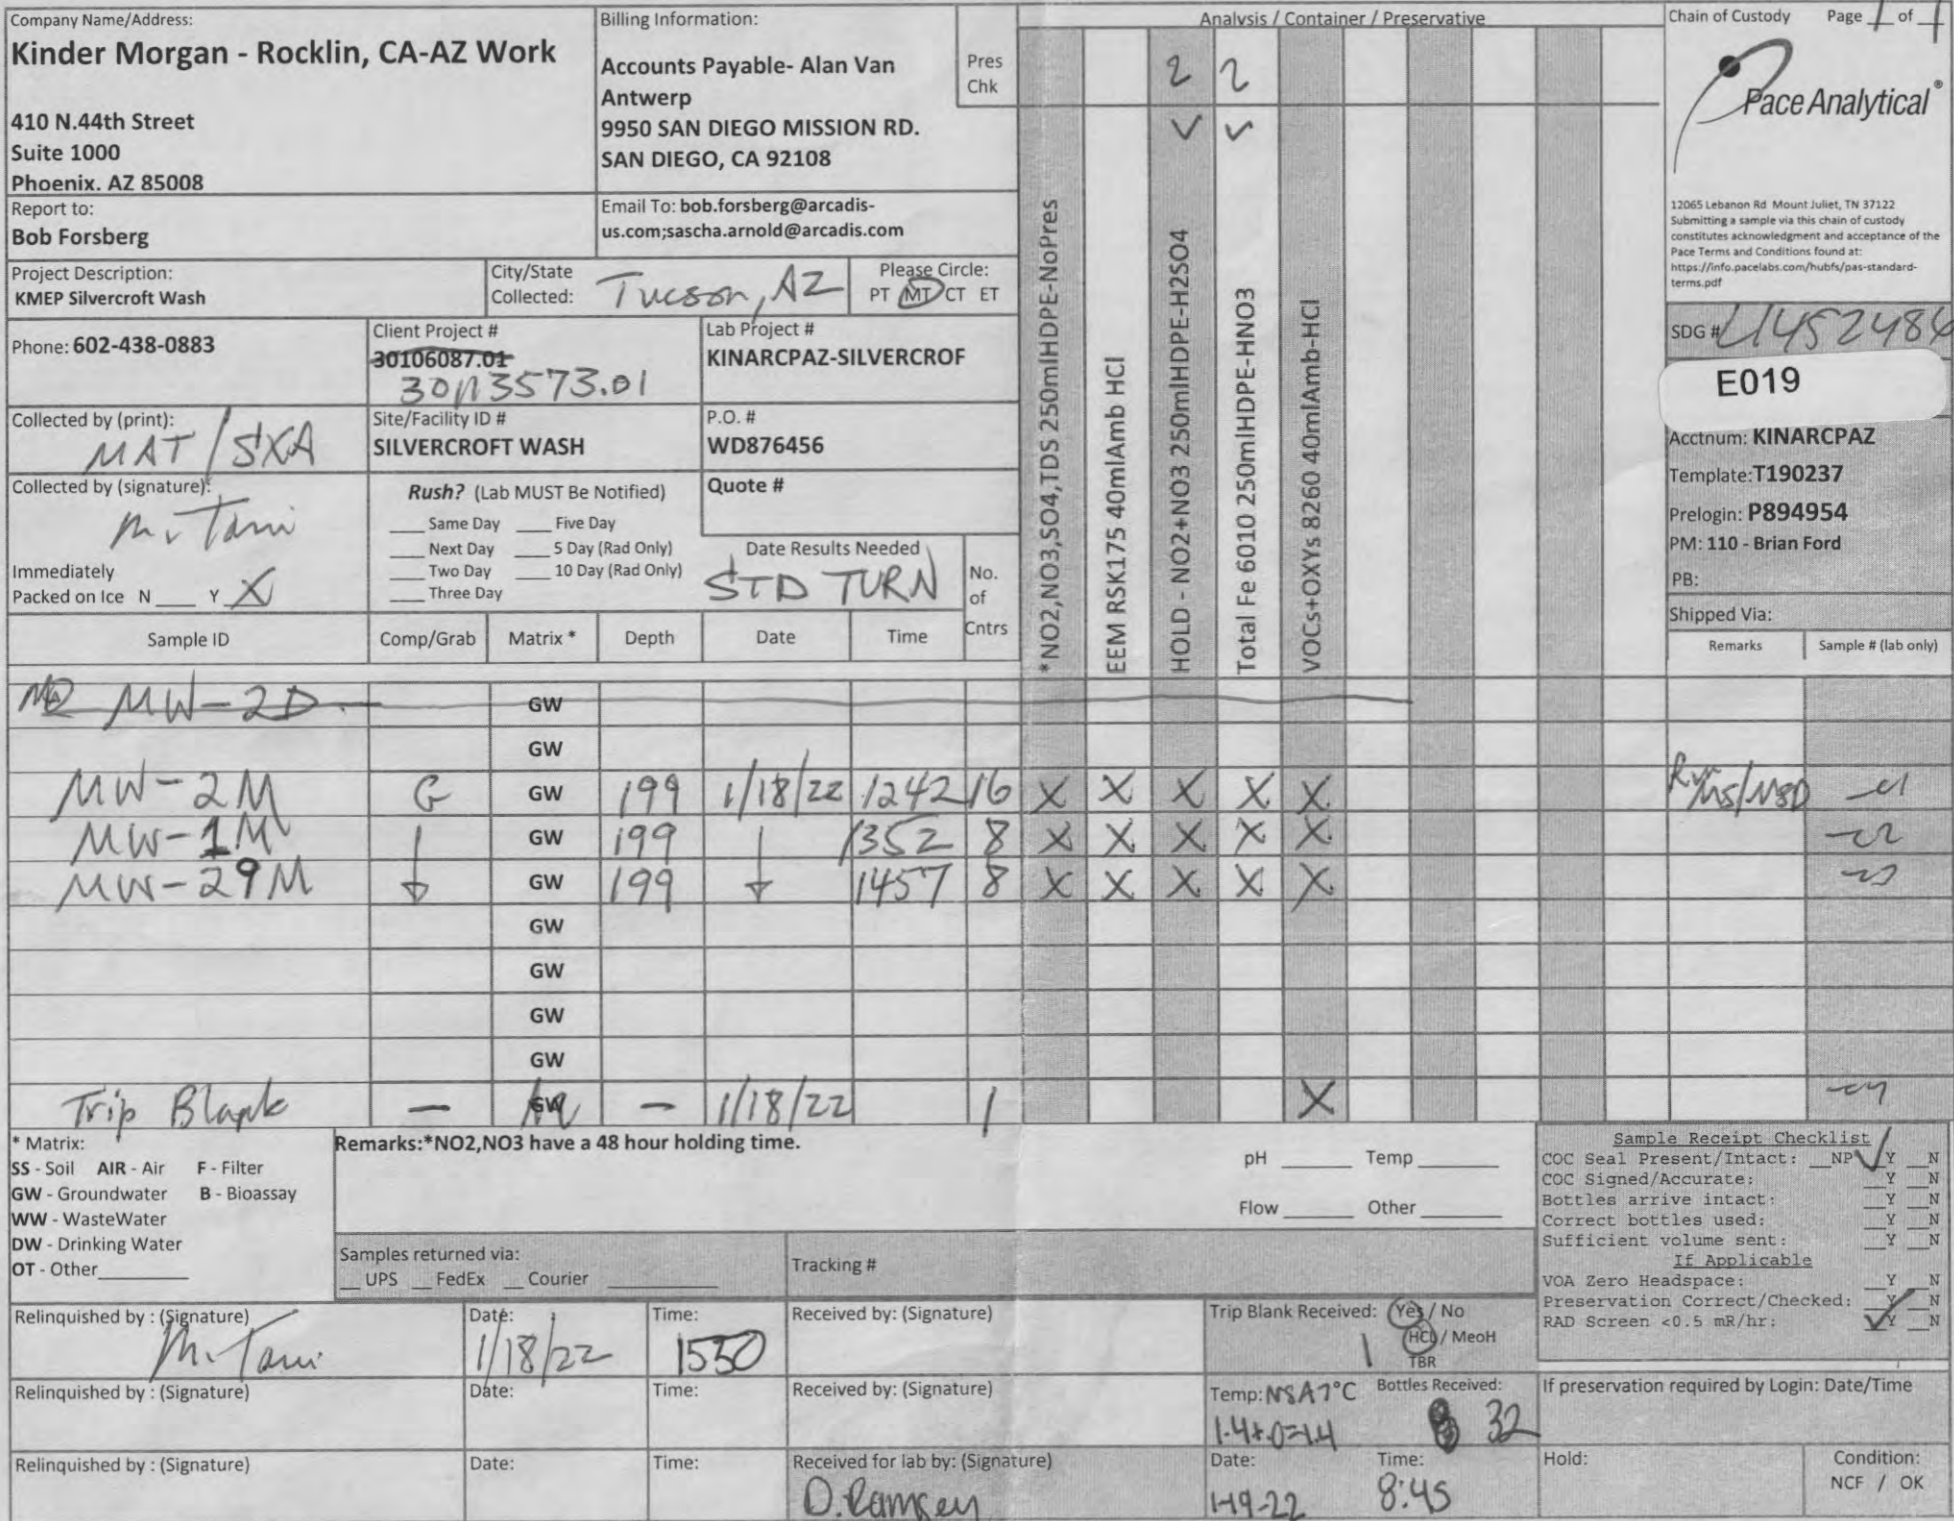 Company Name/Address:
Kinder Morgan - Rocklin, CA-AZ Work
410 N.44th Street
Suite 1000
Phoenix. AZ 85008
Billing Information:
Accounts Payable- Alan Van
Antwerp
9950 SAN DIEGO MISSION RD.
SAN DIEGO, CA 92108
Pres
Chk
Analysis / Container / Preservative
2 2
Chain of Custody Page 1 of 1
Pace Analytical®
12065 Lebanon Rd Mount Juliet, TN 37122
Submitting a sample via this chain of custody
constitutes acknowledgment and acceptance of the
Pace Terms and Conditions found at:
https://info.pacelabs.com/hubfs/pas-standard-
terms.pdf
Report to:
Bob Forsberg
Email To: bob.forsberg@arcadis-
us.com;sascha.arnold@arcadis.com
Project Description:
KMEP Silvercroft Wash
City/State
Collected: Tucson, AZ
Please Circle:
PT MT CT ET
Phone: 602-438-0883
Client Project #
30106087.01
30113573.01
Lab Project #
KINARCPAZ-SILVERCROF
SDG # L1452484
E019
Collected by (print):
MAT / SXA
Site/Facility ID #
SILVERCROFT WASH
P.O. #
WD876456
Acctnum: KINARCPAZ
Template:T190237
Prelogin: P894954
PM: 110 - Brian Ford
PB:
Shipped Via:
Collected by (signature):
M. Tani
Rush? (Lab MUST Be Notified)
___ Same Day ___ Five Day
___ Next Day ___ 5 Day (Rad Only)
___ Two Day ___ 10 Day (Rad Only)
___ Three Day
Quote #
Date Results Needed
STD TURN
Immediately
Packed on Ice N ___ Y X
No.
of
Cntrs
*NO2,NO3,SO4,TDS 250mlHDPE-NoPres
EEM RSK175 40mlAmb HCl
HOLD - NO2+NO3 250mlHDPE-H2SO4
Total Fe 6010 250mlHDPE-HNO3
VOCs+OXYs 8260 40mlAmb-HCl
Sample ID Comp/Grab Matrix * Depth Date Time Remarks Sample # (lab only)
MW-2D GW
GW
MW-2M G GW 199 1/18/22 1242 16 X X X X X Run MS/MSD -01
MW-1M GW 199 1352 8 X X X X X -02
MW-29M GW 199 1457 8 X X X X X -03
GW
GW
GW
GW
Trip Blank — GW — 1/18/22 1 X -04
* Matrix:
SS - Soil AIR - Air F - Filter
GW - Groundwater B - Bioassay
WW - WasteWater
DW - Drinking Water
OT - Other
Remarks:*NO2,NO3 have a 48 hour holding time.
pH ___ Temp ___
Flow ___ Other ___
Samples returned via:
__ UPS __ FedEx __ Courier
Tracking #
Sample Receipt Checklist
COC Seal Present/Intact: __NP Y __N
COC Signed/Accurate: __Y __N
Bottles arrive intact: __Y __N
Correct bottles used: __Y __N
Sufficient volume sent: __Y __N
If Applicable
VOA Zero Headspace: __Y __N
Preservation Correct/Checked: __Y __N
RAD Screen <0.5 mR/hr: Y __N
Relinquished by : (Signature)
M. Tani
Date:
1/18/22
Time:
1530
Received by: (Signature)
Trip Blank Received: Yes / No
1 HCL / MeoH
TBR
Relinquished by : (Signature)
Date:
Time:
Received by: (Signature)
Temp: NSA7°C
1.4+.0=1.4
Bottles Received:
32
If preservation required by Login: Date/Time
Relinquished by : (Signature)
Date:
Time:
Received for lab by: (Signature)
D. Ramsey
Date:
1-19-22
Time:
8:45
Hold:
Condition:
NCF / OK